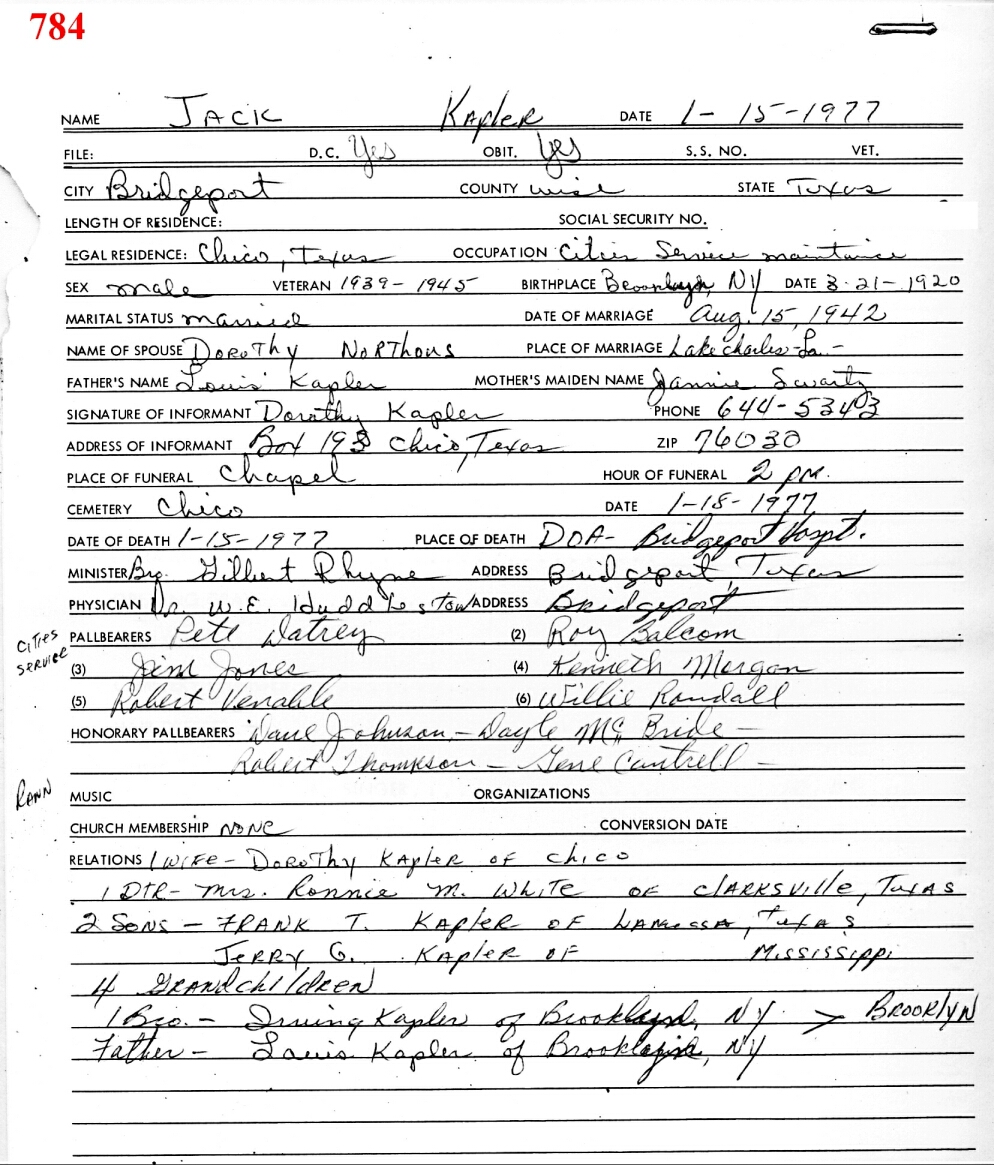 784
NAME JACK Kapler DATE 1-15-1977
FILE: D.C. Yes OBIT. Yes S.S. NO. VET.
CITY Bridgeport COUNTY Wise STATE Texas
LENGTH OF RESIDENCE: SOCIAL SECURITY NO.
LEGAL RESIDENCE: Chico, Texas OCCUPATION Cities Service
SEX male VETERAN 1939-1945 BIRTHPLACE NY DATE 3-21-1920
MARITAL STATUS married DATE OF MARRIAGE Aug. 15, 1942
NAME OF SPOUSE DOROTHY PLACE OF MARRIAGE Lake Charles-La.-
FATHER'S NAME Louis Kapler MOTHER'S MAIDEN NAME Swartz
SIGNATURE OF INFORMANT Dorothy Kapler PHONE 644-5343
ADDRESS OF INFORMANT Box Chico, Texas ZIP 76030
PLACE OF FUNERAL Chapel HOUR OF FUNERAL 2 pm.
CEMETERY Chico DATE 1-18-1977
DATE OF DEATH 1-15-1977 PLACE OF DEATH DOA- Bridgeport Hospt.
MINISTER Gilbert Rhyne ADDRESS Bridgeport, Texas
PHYSICIAN Dr. W.E. Huddleston ADDRESS Bridgeport
CITIES SERVICE
PALLBEARERS Pete (2) Roy Balcom
(3) Jim Jones (4) Kenneth Morgan
(5) Robert Venable (6) Willie Randall
HONORARY PALLBEARERS Dave Johnson - Dayle McBride -
Robert Thompson - Gene Cantrell -
RANN
MUSIC ORGANIZATIONS
CHURCH MEMBERSHIP NONE CONVERSION DATE
RELATIONS 1 WIFE- DOROTHY KAPLER OF CHICO
1 DTR- Mrs. Ronnie M. WHITE OF CLARKSVILLE, TEXAS
2 SONS - FRANK T. KAPLER OF TEXAS
JERRY G. KAPLER OF MISSISSIPPI
4 GRANDCHILDREN
1 Bro. - Irving Kapler of NY > BROOKLYN
Father - Louis Kapler of NY